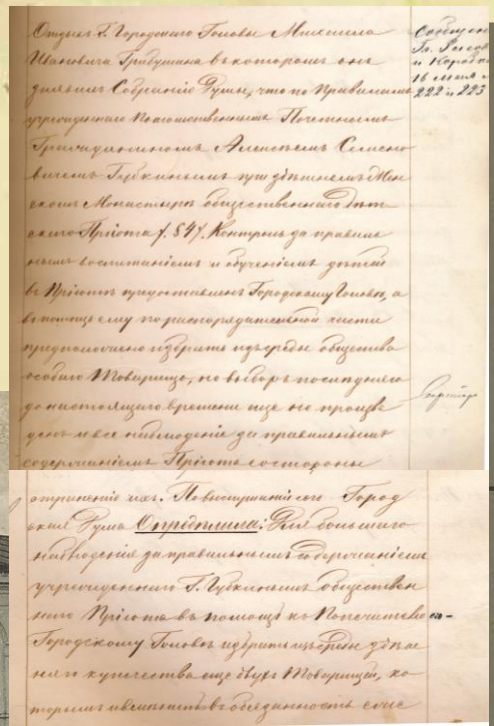 Отзывъ Г. Городскаго Головы Михаила
Ивановича Грибушина въ которомъ онъ
заявилъ Собранію Думы, что по Правиламъ
учрежденнаго Потомственнымъ Почетнымъ
Гражданиномъ Алексѣемъ Семено
вичемъ Губкинымъ при здѣшнемъ Жен
скомъ Монастырѣ общественнаго дѣт
скаго Пріюта /. § 47/. Контроль за правиль
нымъ воспитаніемъ и обученіемъ дѣтей
въ Пріютѣ предоставленъ Городскому Головѣ, а
въ помощь ему по распорядительной части
предположено избрать изъ среды общества
особаго Товарища, но выборъ послѣдняго
до настоящаго времени еще не произве
денъ и все наблюденіе за правильнымъ
содержаніемъ Пріюта со стороны
Сообщен
Гл.
и
16 мая
222 и 223
Секретарь
их. По выслушаніи сего Город
ская Дума Опредѣлила: Для большаго
наблюденія за правильнымъ содержаніемъ
учрежденнаго Г. Губкинымъ обществен
наго Пріюта въ помощь къ
Городскому Головѣ избрать изъ среды здѣш
няго купечества еще двухъ Товарищей, ко
торымъ и вмѣнить въ обязанность